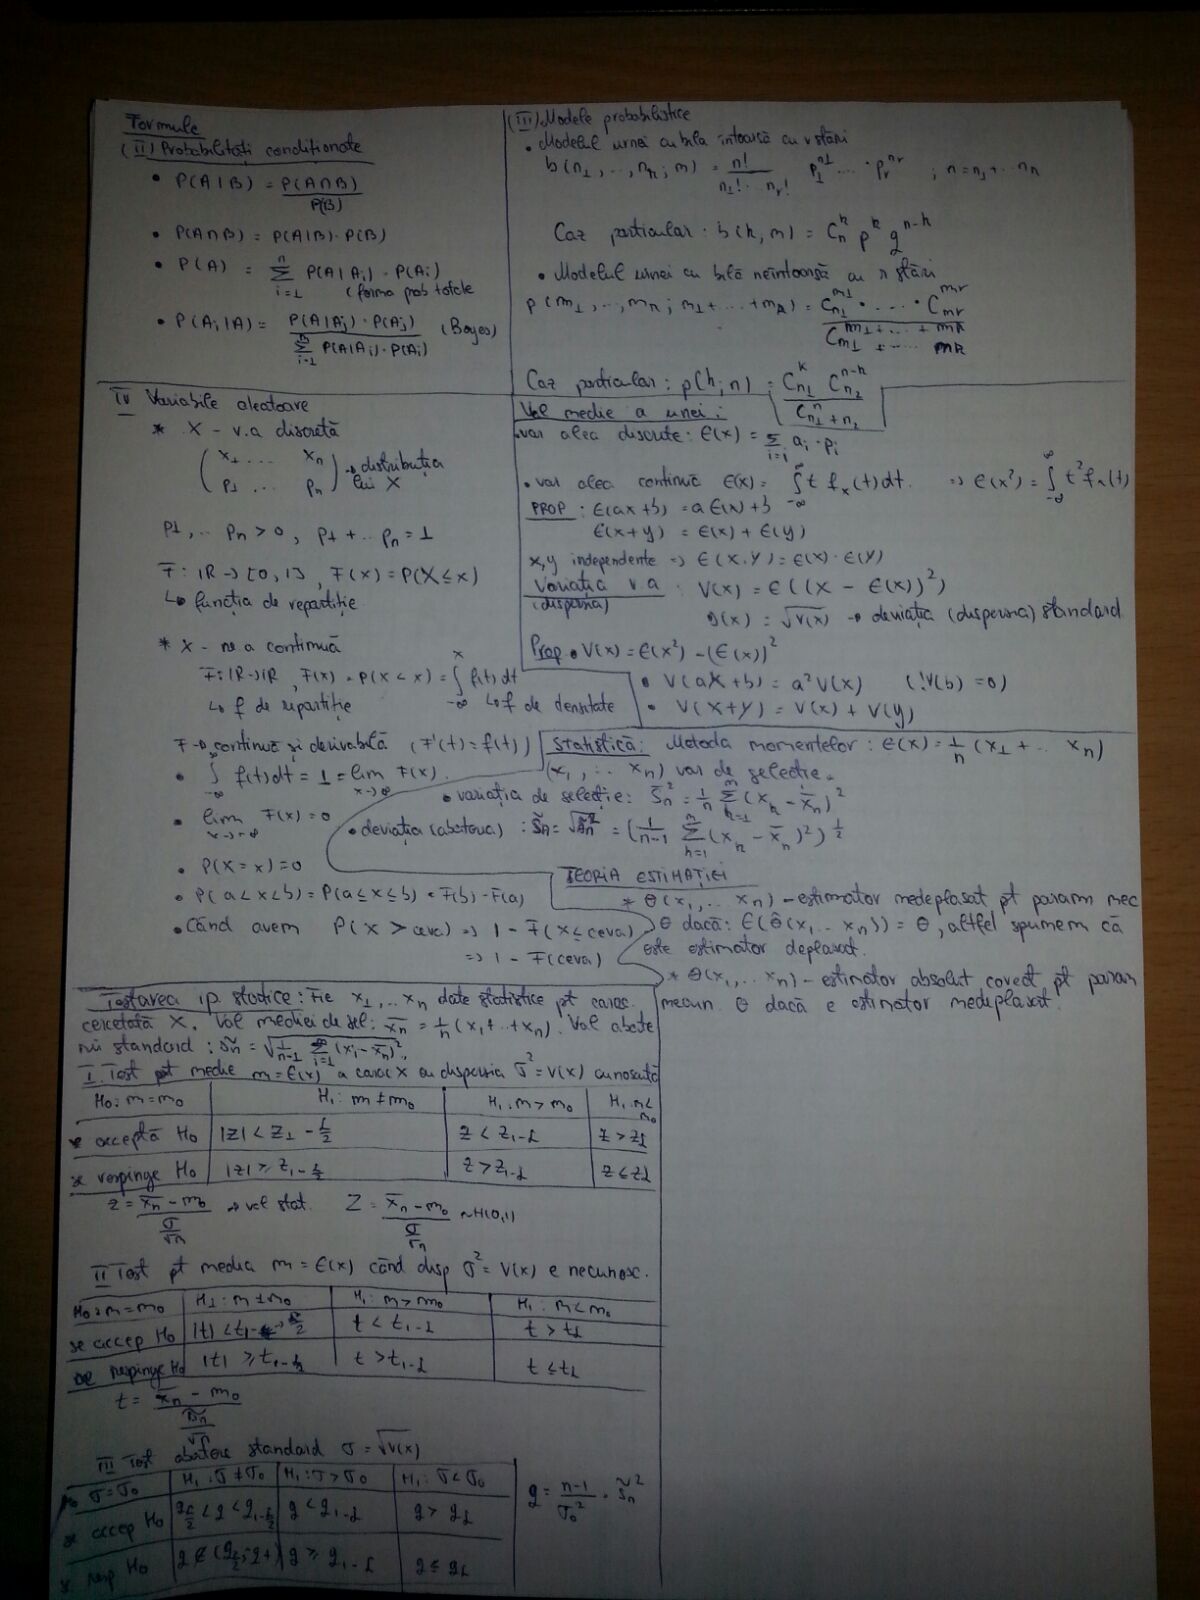 Formule
(II) Probabilități condiționate
• P(A|B) = P(A∩B) / P(B)
• P(A∩B) = P(A|B)·P(B)
• P(A) = n Σ i=1 P(A|Ai)·P(Ai)
(forma prob totale
• P(Ai|A) = P(A|Aj)·P(Aj) / n Σ i=1 P(A|Ai)·P(Ai) (Bayes)
(III) Modele probabilistice
• Modelul urnei cu bila întoarsă cu r stări
b(n1,..,nr; n) = n! / n1!··nr! p1^n1 .... pr^nr ; n=n1+..nr
Caz particular: b(k,n) = Cn^k p^k q^n-k
• Modelul urnei cu bilă neîntoarsă cu r stări
Caz particular: p(k;n) = Cn1^k Cn2^n-k / Cn1+n2^n
IV Variabile aleatoare
* X - v.a discretă
(x1 .... xn
p1 .... pn) → distribuția lui X
p1,.. pn > 0, p1+..pn = 1
F: IR → [0,1], F(x) = P(X ≤ x)
↳ funcția de repartiție
* X - va continuă
F: IR→IR, F(x) = P(X < x) = x ∫ -∞ f(t) dt
↳ f de repartiție ↳ f de densitate
F → continuă și derivabilă (F'(t) = f(t))
• ∞ ∫ -∞ f(t)dt = 1 = lim x→∞ F(x)
• lim x→-∞ F(x) = 0
• P(X = x) = 0
• P(a<x<b) = P(a≤x≤b) = F(b) - F(a)
• Când avem P(X > ceva) ⇒ 1 - F(x≤ceva)
⇒ 1 - F(ceva)
Val medie a unei:
• var alea discrete: E(x) = Σ i=1 ai·pi
• var alea continuă E(x) = ∞ ∫ -∞ t fx(t) dt. ⇒ E(x²) = ∞ ∫ -∞ t² fx(t)
PROP: E(ax+b) = aE(x)+b
E(x+y) = E(x) + E(y)
x,y independente ⇒ E(X.Y) = E(x)·E(Y)
Variația v.a (dispersia) : V(x) = E((X - E(x))²)
D(x) = √V(x) → deviația (dispersia) standard
Prop • V(x) = E(x²) - (E(x))²
• V(aX+b) = a²V(x) (!V(b) = 0)
• V(X+Y) = V(x) + V(y)
Statistică: Metoda momentelor: E(x) = 1/n (x1+.. xn)
(x1, .. xn) var de selecție.
• variația de selecție: S̄n² = 1/n n Σ k=1 (xk - x̄n)²
• deviația (abaterea) : S̃n = √S̃n² = (1/n-1 n Σ k=1 (xk - x̄n)²)^1/2
TEORIA ESTIMAȚIEI
* θ(x1,.. xn) - estimator nedeplasat pt param nec
θ dacă: E(θ̂(x1,.. xn)) = θ, altfel spunem că
este estimator deplasat.
* θ(x1,.. xn) - estimator absolut corect pt param
necun. θ dacă e estimator nedeplasat.
Testarea ip. statice: Fie x1,.. xn date statistice pt carac.
cercetată X. Val mediei de sel: x̄n = 1/n (x1+..+xn). Val abate
rii standard : s̃n = √1/n-1 Σ i=1 (xi - x̄n)².
I. Test pt medie m=E(x) a carac X cu dispersia σ²=V(x) cunoscută
H0: m=m0 H1: m≠m0 H1: m>m0 H1: m<m0
se acceptă H0 |Z| < Z1-α/2 Z < Z1-α Z > Zα
se respinge H0 |Z| ≥ Z1-α/2 Z > Z1-α Z ≤ Zα
z = x̄n - m0 / σ/√n → val stat. Z = x̄n - m0 / σ/√n ~ N(0,1)
II Test pt media m = E(x) când disp σ² = V(x) e necunosc.
H0: m=m0 H1: m≠m0 H1: m>m0 H1: m<m0
se accep H0 |t| < t1-α/2 t < t1-α t > tα
se respinge H0 |t| ≥ t1-α/2 t > t1-α t ≤ tα
t = x̄n - m0 / s̃n/√n
III Test abatere standard σ = √V(x)
H0 σ=σ0 H1: σ≠σ0 H1: σ>σ0 H1: σ<σ0
se accep H0 gα/2 < g < g1-α/2 g < g1-α g > gα
resp H0 g ≥ g1-α g ≤ gα
g = n-1/σ0² · s̃n²